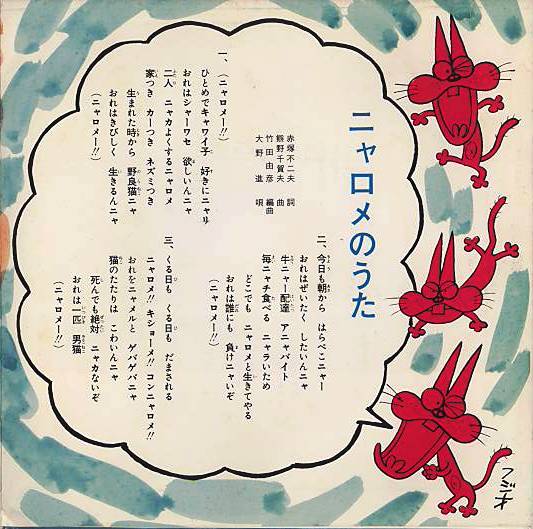 ニャロメのうた
赤塚不二夫 詞
熊野千賀夫 曲
竹田由彦 編曲
大野進 唄
一、(ニャロメー!!)
ひとめでキャワイ子 好きにニャリ
おれはシャーワセ 欲しいんニャ
二人 ニャカよくするニャロメ
家つき カーつき ネズミつき
生まれた時から 野良猫ニャ
おれはきびしく 生きるんニャ
(ニャロメー!!)
二、今日も朝から はらぺこニャー
おれはぜいたく したいんニャ
牛ニャー配達 アニャバイト
毎ニャチ食べる ニャラいため
どこでも ニャロメと生きてやる
おれは誰にも 負けニャいぞ
(ニャロメー!!)
三、くる日も くる日も だまされる
ニャロメ!! キショーメ!! コンニャロメ!!
おれをニャメルと ゲバゲバニャ
猫のたたりは こわいんニャ
死んでも絶対 ニャカないぞ
おれは一匹 男猫
(ニャロメー!!)
フジオ